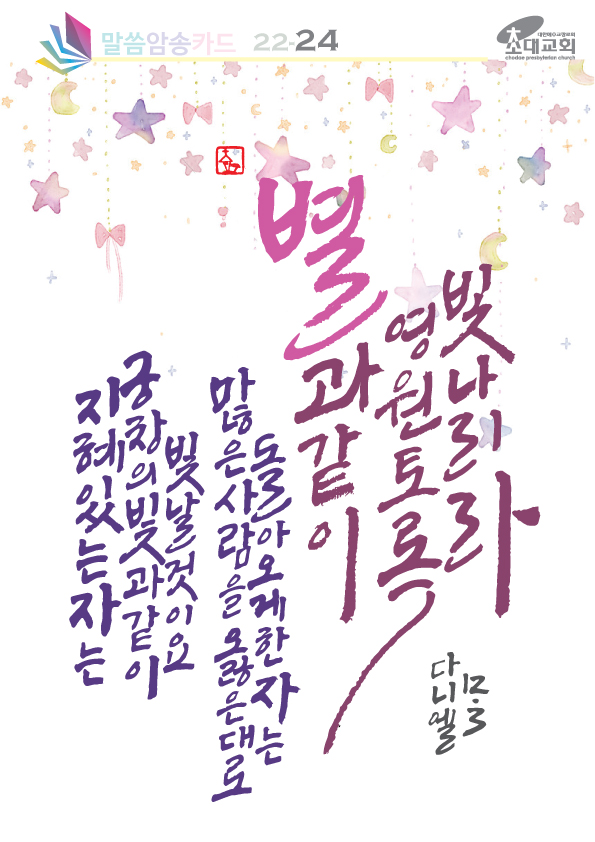 말씀암송카드 22-24
대한예수교장로회
초대교회
chodae presbyterian church
지혜 있는 자는
궁창의 빛과 같이
빛날 것이요
많은 사람을 옳은 대로
돌아오게 한 자는
별과 같이
영원토록
빛나리라
다니엘
12:3